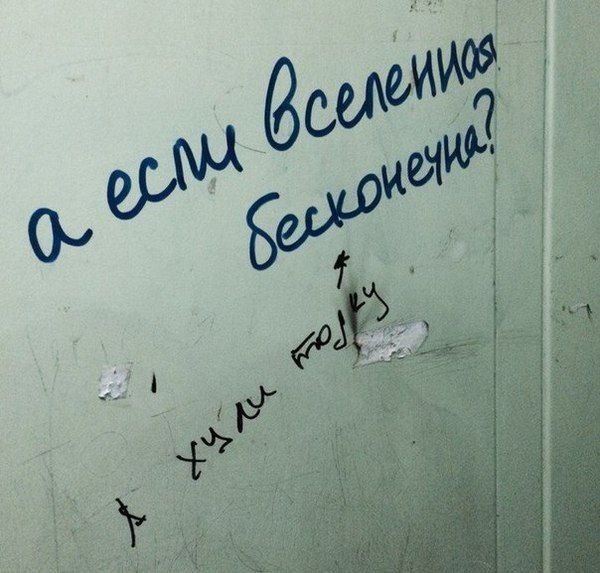 а если вселенная
бесконечна?
А хули толку